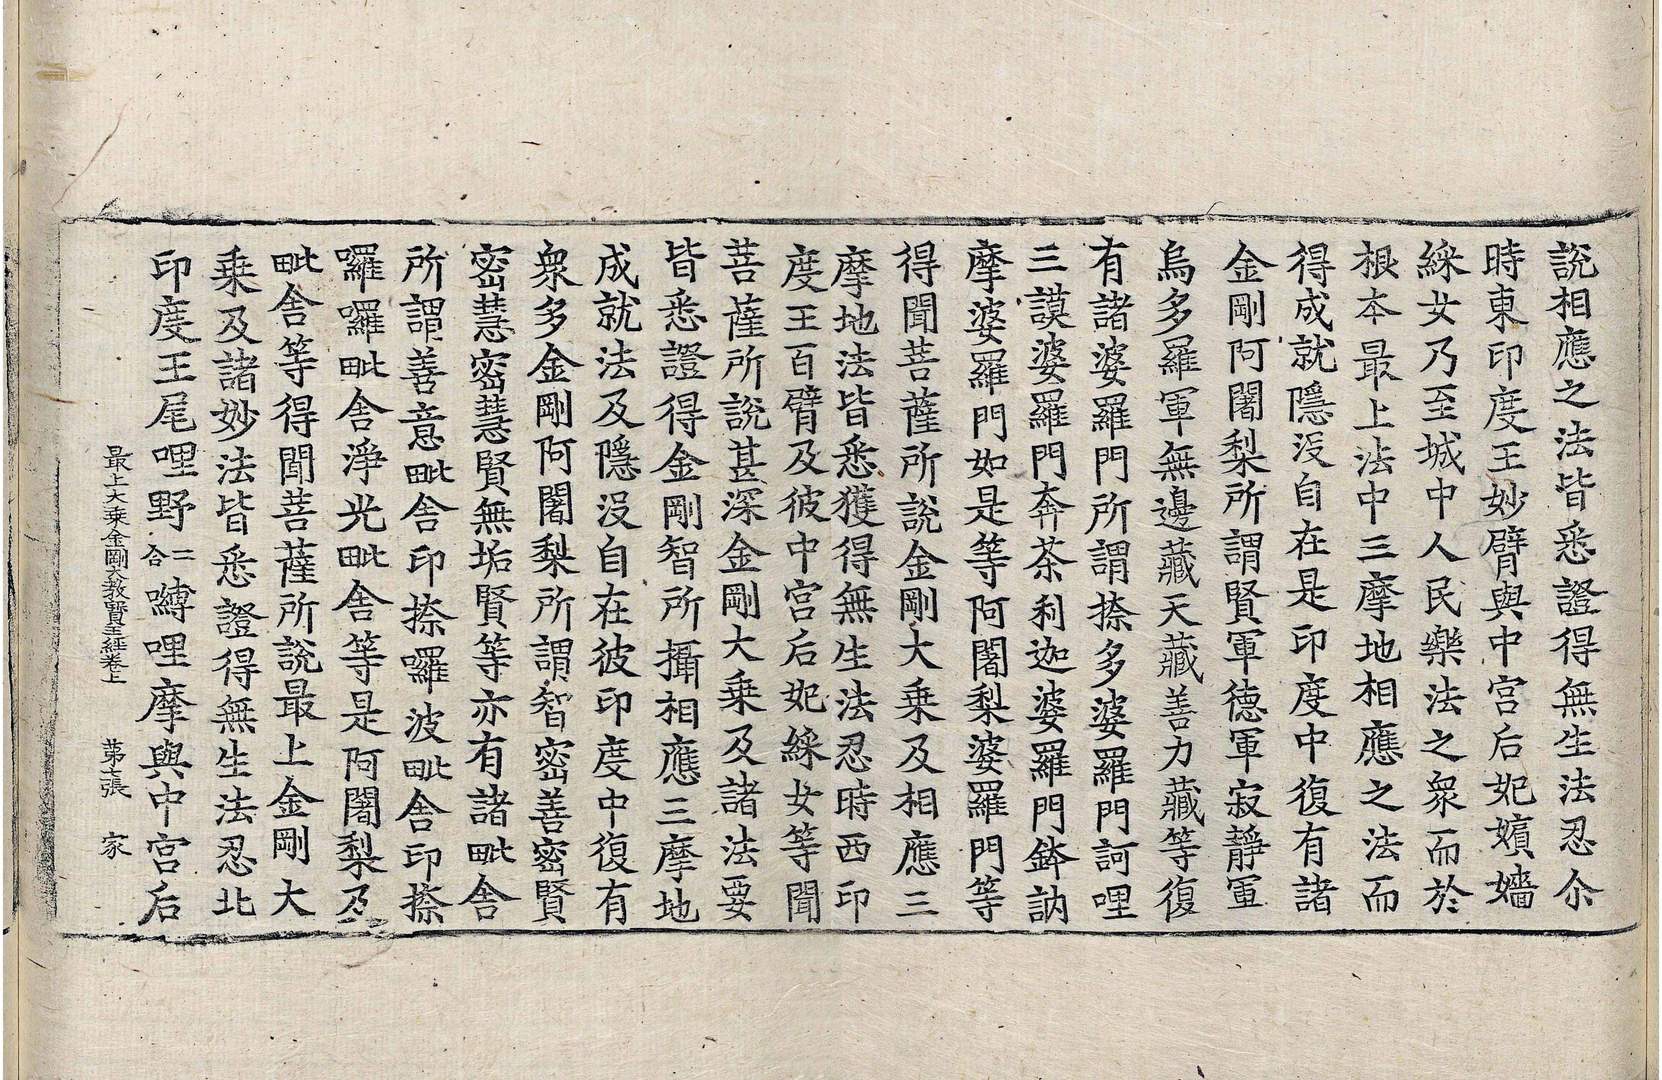 說相應之法皆悉證得無生法忍尒
時東印度王妙臂與中宮后妃嬪嬙
綵女乃至城中人民樂法之衆而於
根本最上法中三摩地相應之法而
得成就隱沒自在是印度中復有諸
金剛阿闍梨所謂賢軍德軍寂靜軍
烏多羅軍無邊藏天藏善力藏等復
有諸婆羅門所謂捺多婆羅門訶哩
三謨婆羅門奔茶利迦婆羅門鉢訥
摩婆羅門如是等阿闍梨婆羅門等
得聞菩薩所說金剛大乗及相應三
摩地法皆悉獲得無生法忍時西印
度王百臂及彼中宮后妃綵女等聞
菩薩所說甚深金剛大乗及諸法要
皆悉證得金剛智所攝相應三摩地
成就法及隱沒自在彼印度中復有
衆多金剛阿闍梨所謂智密善密賢
密慧密慧賢無垢賢等亦有諸毗舍
所謂善意毗舍印捺囉波毗舍印捺
囉囉毗舍淨光毗舍等是阿闍梨及
毗舍等得聞菩薩所說最上金剛大
乗及諸妙法皆悉證得無生法忍北
印度王尾哩野二合嚩哩摩與中宮后
最上大乗金剛大教寳王經卷上 第七張 家